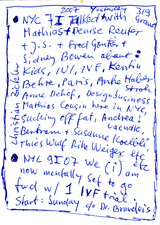 2007 Yesterday 3/9
NYC 7I Talked with Grand
Mathias + Denise Reuter
+ J.S. + Fred Gouter +
Sidney Bowen about:
Kids, IUI, IVF, Kerstin
Behre, Paris, Anke Haber
Anne Dehof, Design Business
Mathias Cousin here in NYC,
Sucking off fat, Andrea
Bertram + Susanne Koelbl,
Thies Wulf Rike Weiger etc
NYC 9I07 We (i)
now mentally set to go
fwd w/ 1 IVF trial.
Start: Sunday c/o Dr. Brandeis